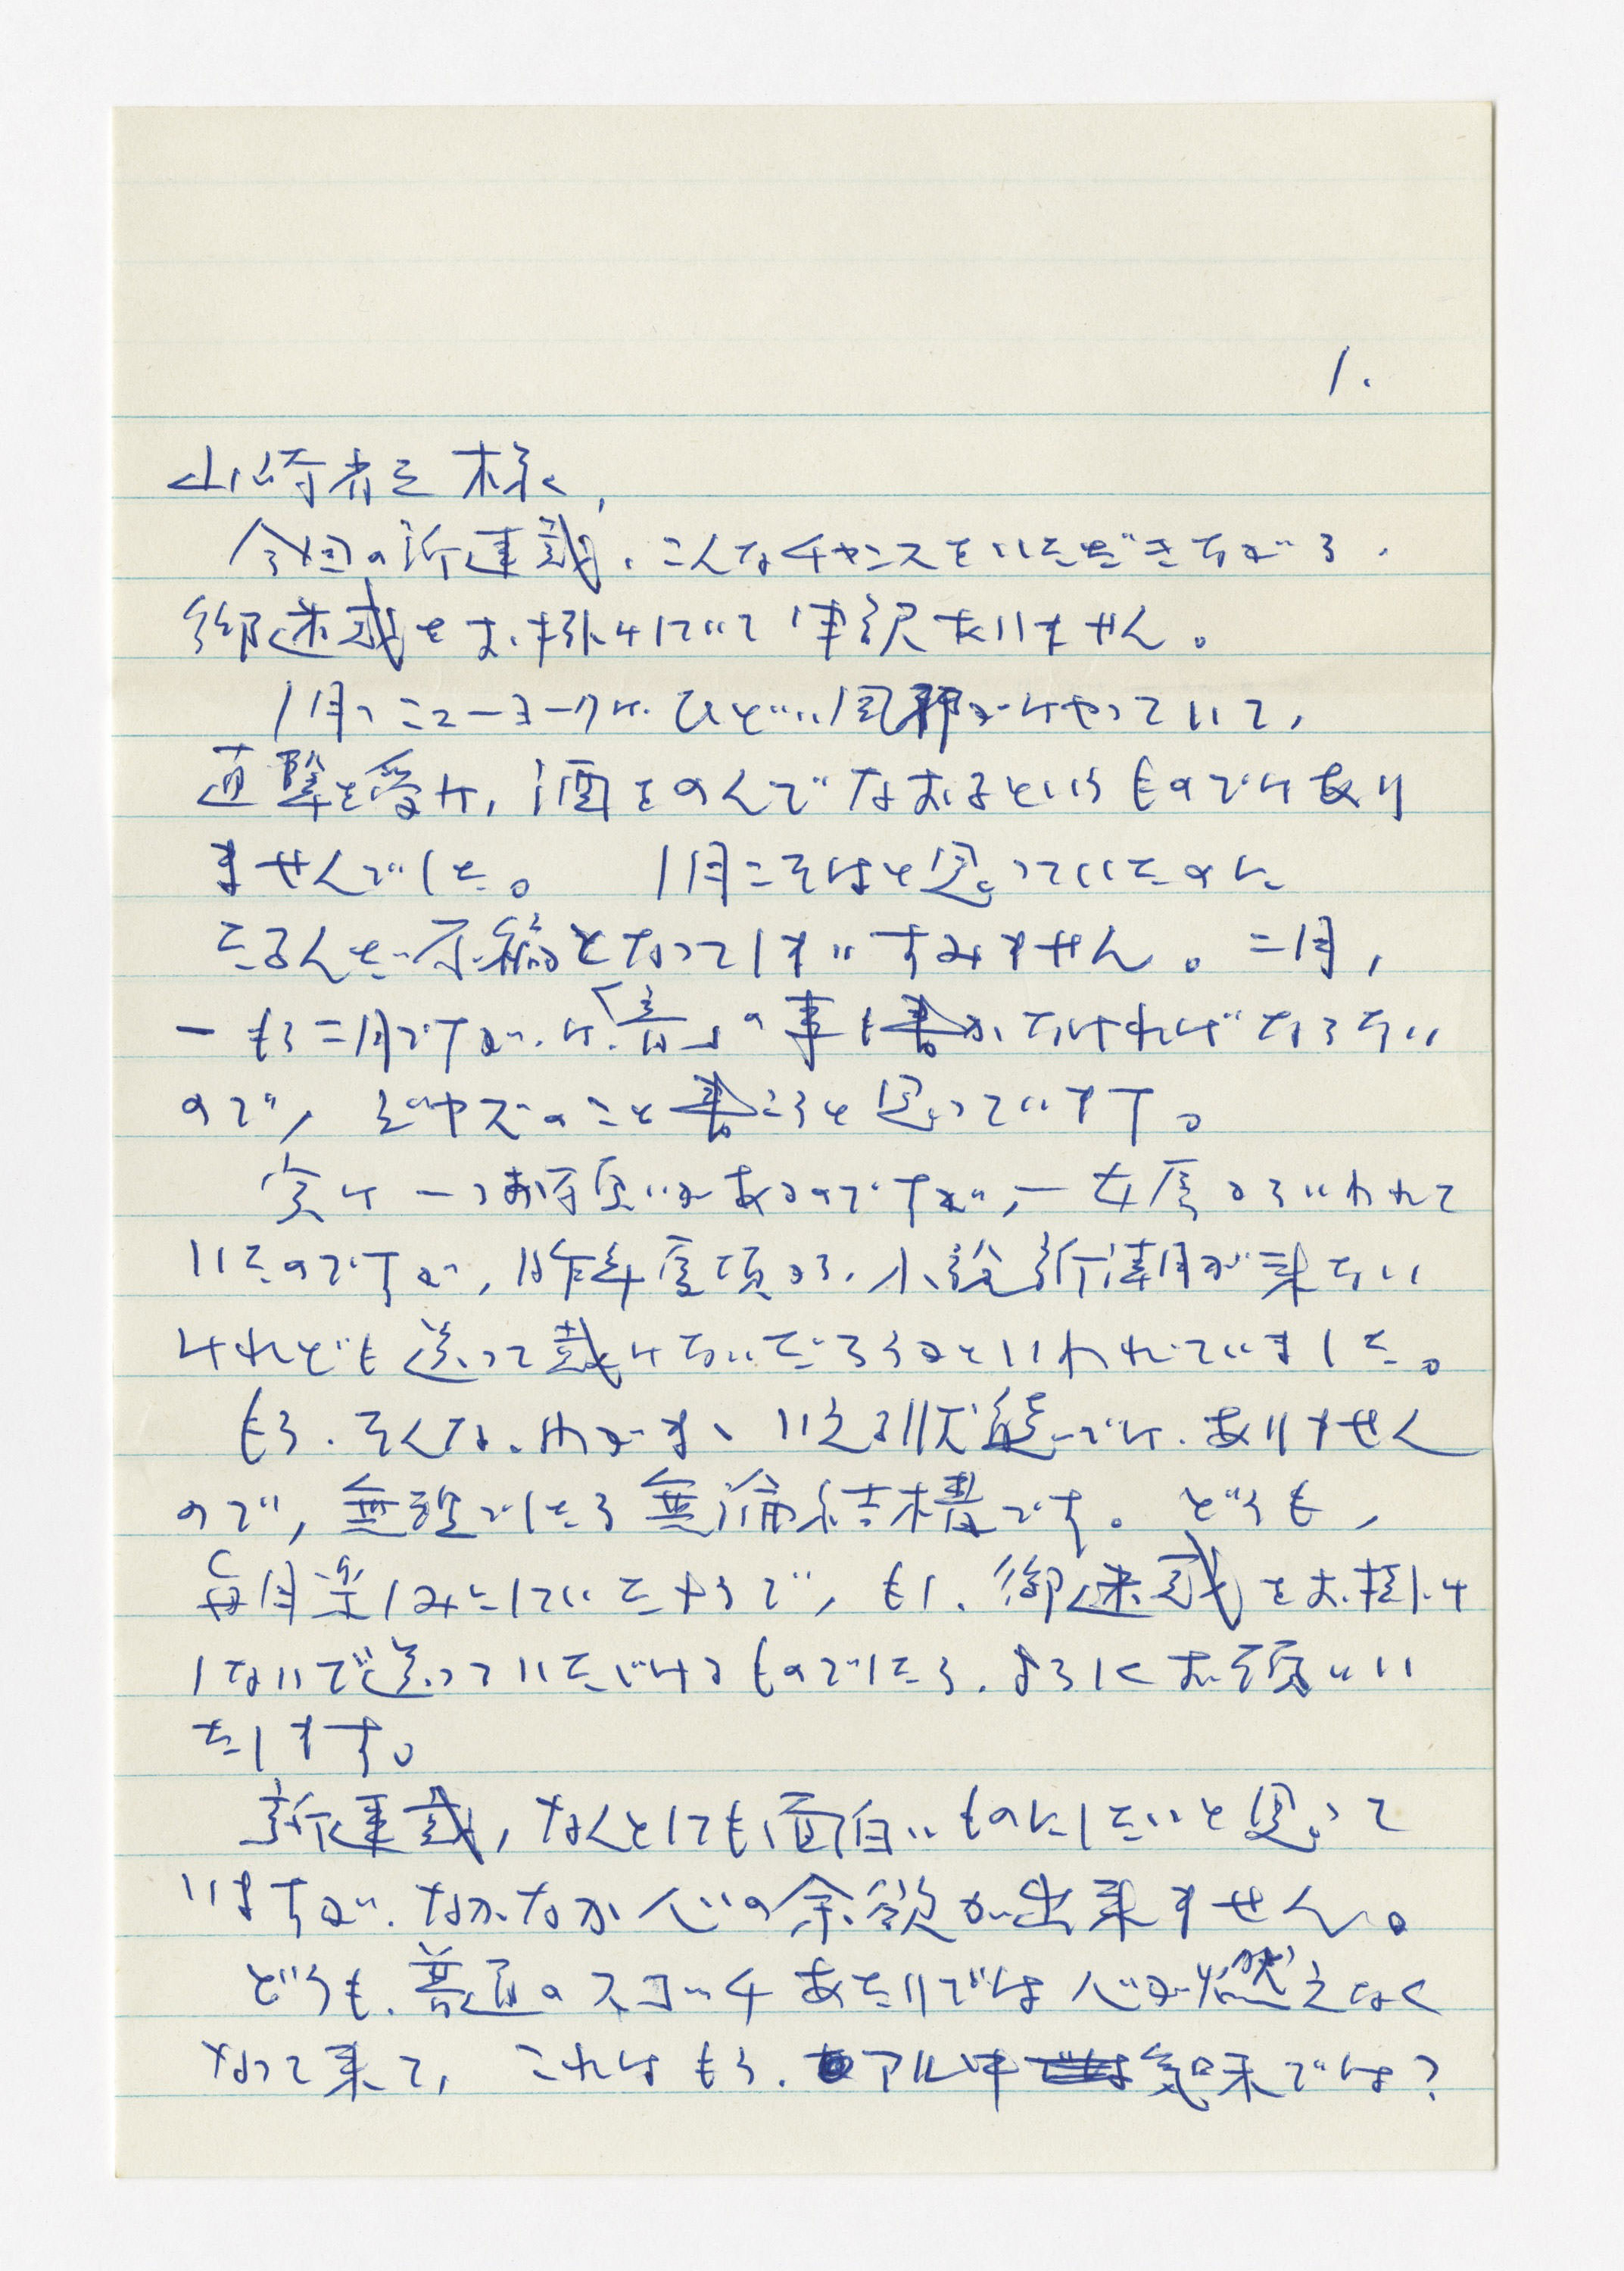 1.
山崎省三様、
今回の新連載、こんなチャンスをいただきながら、
御迷惑をお掛けしていて申訳ありません。
1月のニューヨークは、ひどい風邪がはやっていて、
直撃を受け、酒をのんでなおるというものではあり
ませんでした。 1月こそはと思っていたのに
たるんだ原稿となってしまいすみません。二月、
ーもう二月ですが、は、「音」の事も書かなければならない
ので、ジャズのこと書こうと思っています。
実は一つお願いがあるのですが、ー女房からいわれて
いたのですが、昨年度頃から、小説新潮が来ない
けれども送って戴けないだろうかといわれていました。
もう、そんな、わがまゝいえる状態では、ありません
ので、無理でしたら無論結構です。どうも、
毎月楽しみにしていたやうで、もし、御迷惑をお掛け
しないで送っていただけるものでしたら、よろしくお願いい
たします。
新連載、なんとしても面白いものにしたいと思って
いますが、なかなか心の余裕が出来ません。
どうも、普通のスコッチあたりでは心が燃えなく
なって来て、これはもう、アル中気味では？